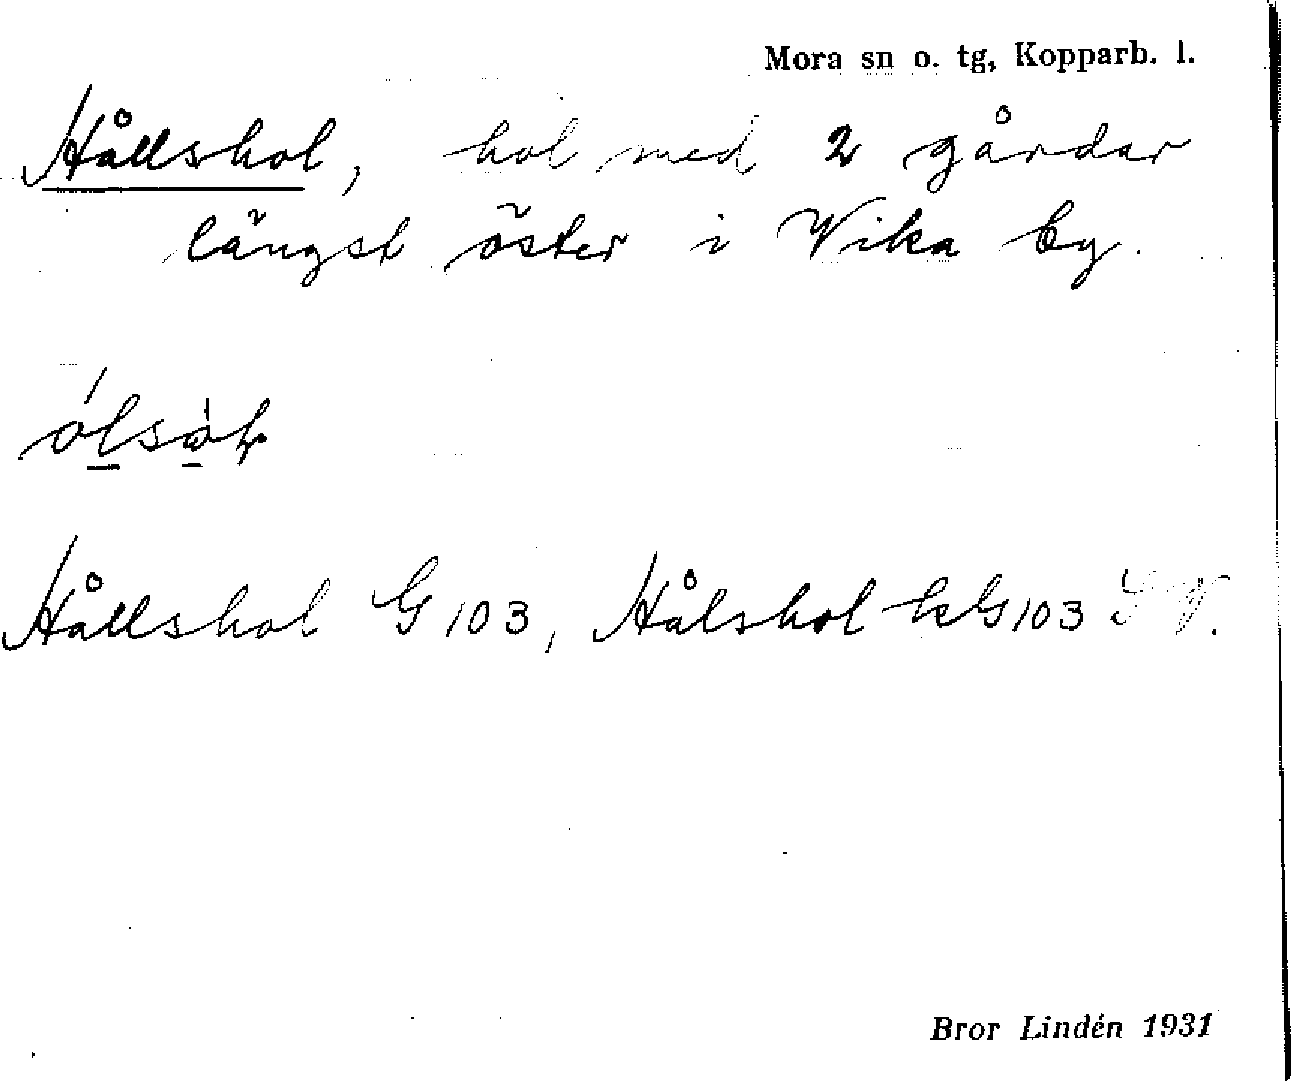 Mora sn o. tg, Kopparb. l.
Hållshol, hol med 2 gårdar
längst öster i Vika by.
Hållshol G 103, Hålshol kG 103
Bror Lindén 1931